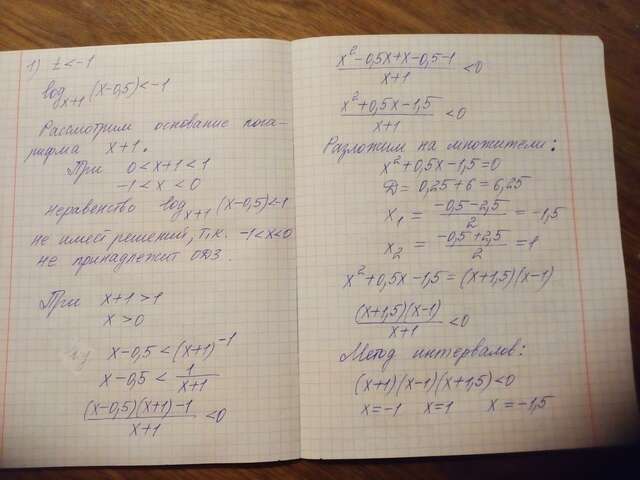 1) t < -1
log_{x+1} (x-0,5) < -1
Рассмотрим основание лога-
рифма x+1.
При 0 < x+1 < 1
-1 < x < 0
неравенство log_{x+1} (x-0,5) < -1
не имеет решений, т.к. -1 < x < 0
не принадлежит ОДЗ.
При x+1 > 1
x > 0
x-0,5 < (x+1)^{-1}
x-0,5 < \frac{1}{x+1}
\frac{(x-0,5)(x+1)-1}{x+1} < 0
\frac{x^2-0,5x+x-0,5-1}{x+1} < 0
\frac{x^2+0,5x-1,5}{x+1} < 0
Разложим на множители:
x^2+0,5x-1,5=0
Д = 0,25+6 = 6,25
x_1 = \frac{-0,5-2,5}{2} = -1,5
x_2 = \frac{-0,5+2,5}{2} = 1
x^2+0,5x-1,5 = (x+1,5)(x-1)
\frac{(x+1,5)(x-1)}{x+1} < 0
Метод интервалов:
(x+1)(x-1)(x+1,5) < 0
x = -1 x = 1 x = -1,5